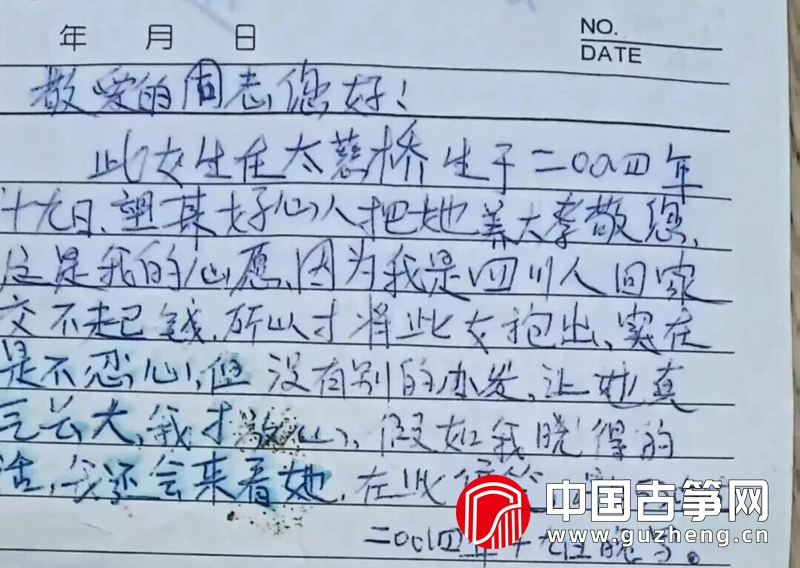 年 月 日 NO.
DATE
敬爱的同志您好!
此女生在太慈桥生于二00四年
十九日、望某好心人把她养大孝敬您,
这是我的心愿、因为我是四川人回家
交不起已钱、所以才将此女抱出、实在
是不忍心,但没有别的办发、让她真
气长大,我才放心、假如我晓得的
话,我还会来看她、在此
二00四年十九 晚
中国古筝网
www.guzheng.cn